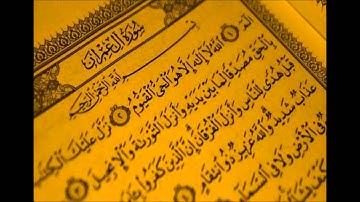 سُورَةُ آلِ عِمْرَانَ
بِسْمِ ٱللَّهِ ٱلرَّحْمَٰنِ ٱلرَّحِيمِ
الٓمٓ ١ ٱللَّهُ لَآ إِلَٰهَ إِلَّا هُوَ ٱلْحَىُّ ٱلْقَيُّومُ ٢ نَزَّلَ عَلَيْكَ ٱلْكِتَٰبَ
بِٱلْحَقِّ مُصَدِّقًا لِّمَا بَيْنَ يَدَيْهِ وَأَنزَلَ ٱلتَّوْرَىٰةَ وَٱلْإِنجِيلَ ٣
قَبْلُ هُدًى لِّلنَّاسِ وَأَنزَلَ ٱلْفُرْقَانَ إِنَّ ٱلَّذِينَ كَفَرُوا۟
عَذَابٌ شَدِيدٌ وَٱللَّهُ عَزِيزٌ ذُو ٱنتِقَامٍ
فِى ٱلْأَرْضِ وَلَا فِى ٱلسَّمَآءِ